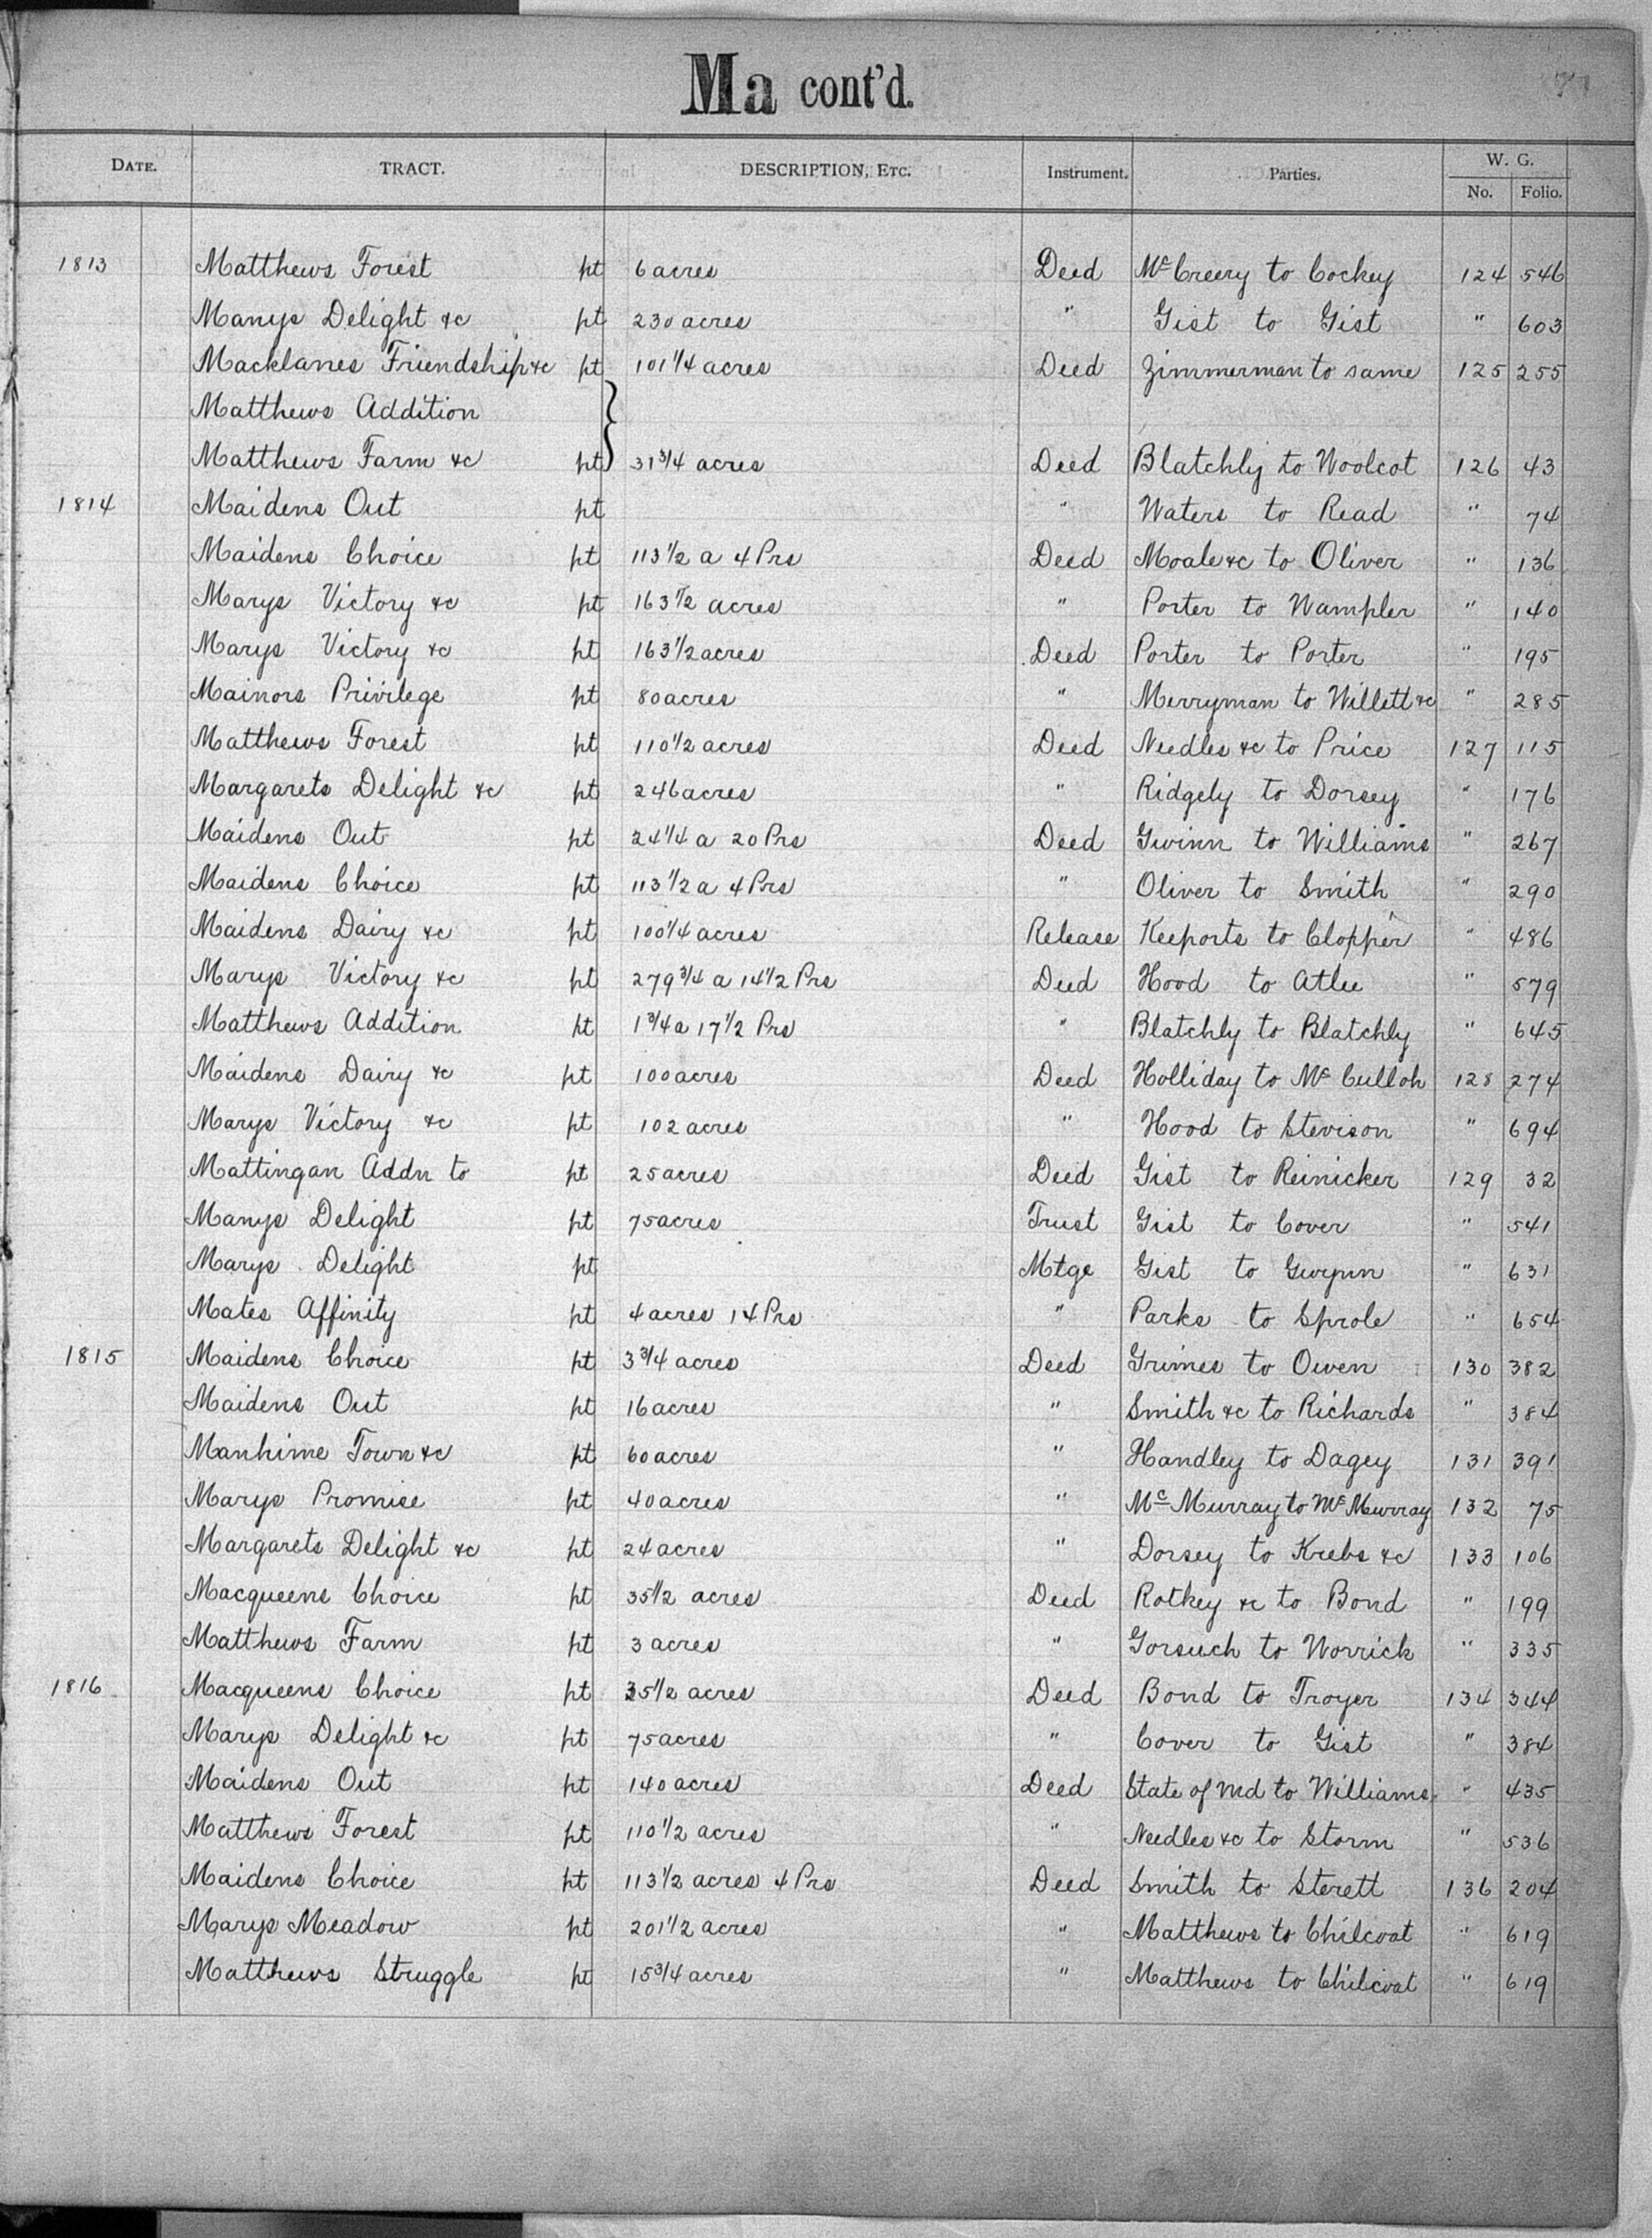 Ma cont'd.
DATE. TRACT. DESCRIPTION, ETC. Instrument. Parties. W. G.
No. Folio.
1813 Matthews Forest pt 6 acres Deed McCreery to Cockey 124 546
Manys Delight &c pt 230 acres " Gist to Gist " 603
Macklanes Friendship &c pt 101 1/4 acres Deed Zimmerman to same 125 255
Matthews Addition }
Matthews Farm &c pt 31 3/4 acres Deed Blatchly to Woolcot 126 43
1814 Maidens Out pt " Waters to Read " 74
Maidens Choice pt 113 1/2 a 4 Prs Deed Moale &c to Oliver " 136
Marys Victory &c pt 163 1/2 acres " Porter to Wampler " 140
Marys Victory &c pt 163 1/2 acres Deed Porter to Porter " 195
Mainors Privilege pt 80 acres " Merryman to Willett &c " 285
Matthews Forest pt 110 1/2 acres Deed Needles &c to Price 127 115
Margarets Delight &c pt 246 acres " Ridgely to Dorsey " 176
Maidens Out pt 24 1/4 a 20 Prs Deed Gwinn to Williams " 267
Maidens Choice pt 113 1/2 a 4 Prs " Oliver to Smith " 290
Maidens Dairy &c pt 100 1/4 acres Release Keeports to Clopper " 486
Marys Victory &c pt 279 3/4 a 14 1/2 Prs Deed Hood to Atlee " 579
Matthews Addition pt 1 3/4 a 17 1/2 Prs " Blatchly to Blatchly " 645
Maidens Dairy &c pt 100 acres Deed Holliday to McCulloh 128 274
Marys Victory &c pt 102 acres " Hood to Stevison " 694
Mattingan Addn to pt 25 acres Deed Gist to Reinicker 129 32
Manys Delight pt 75 acres Trust Gist to Cover " 541
Marys Delight pt Mtge Gist to Gwynn " 631
Mates Affinity pt 4 acres 14 Prs " Parks to Sprole " 654
1815 Maidens Choice pt 3 3/4 acres Deed Grimes to Owen 130 382
Maidens Out pt 16 acres " Smith &c to Richards " 384
Manhime Town &c pt 60 acres " Handley to Dagey 131 391
Marys Promise pt 40 acres " McMurray to McMurray 132 75
Margarets Delight &c pt 24 acres " Dorsey to Krebs &c 133 106
Macqueens Choice pt 35 1/2 acres Deed Rotkey &c to Bond " 199
Matthews Farm pt 3 acres " Gorsuch to Worrick " 335
1816 Macqueens Choice pt 35 1/2 acres Deed Bond to Troyer 134 344
Marys Delight &c pt 75 acres " Cover to Gist " 384
Maidens Out pt 140 acres Deed State of Md to Williams " 435
Matthews Forest pt 110 1/2 acres " Needles &c to Storm " 536
Maidens Choice pt 113 1/2 acres 4 Prs Deed Smith to Sterett 136 204
Marys Meadow pt 201 1/2 acres " Matthews to Chilcoat " 619
Matthews Struggle pt 15 3/4 acres " Matthews to Chilcoat " 619